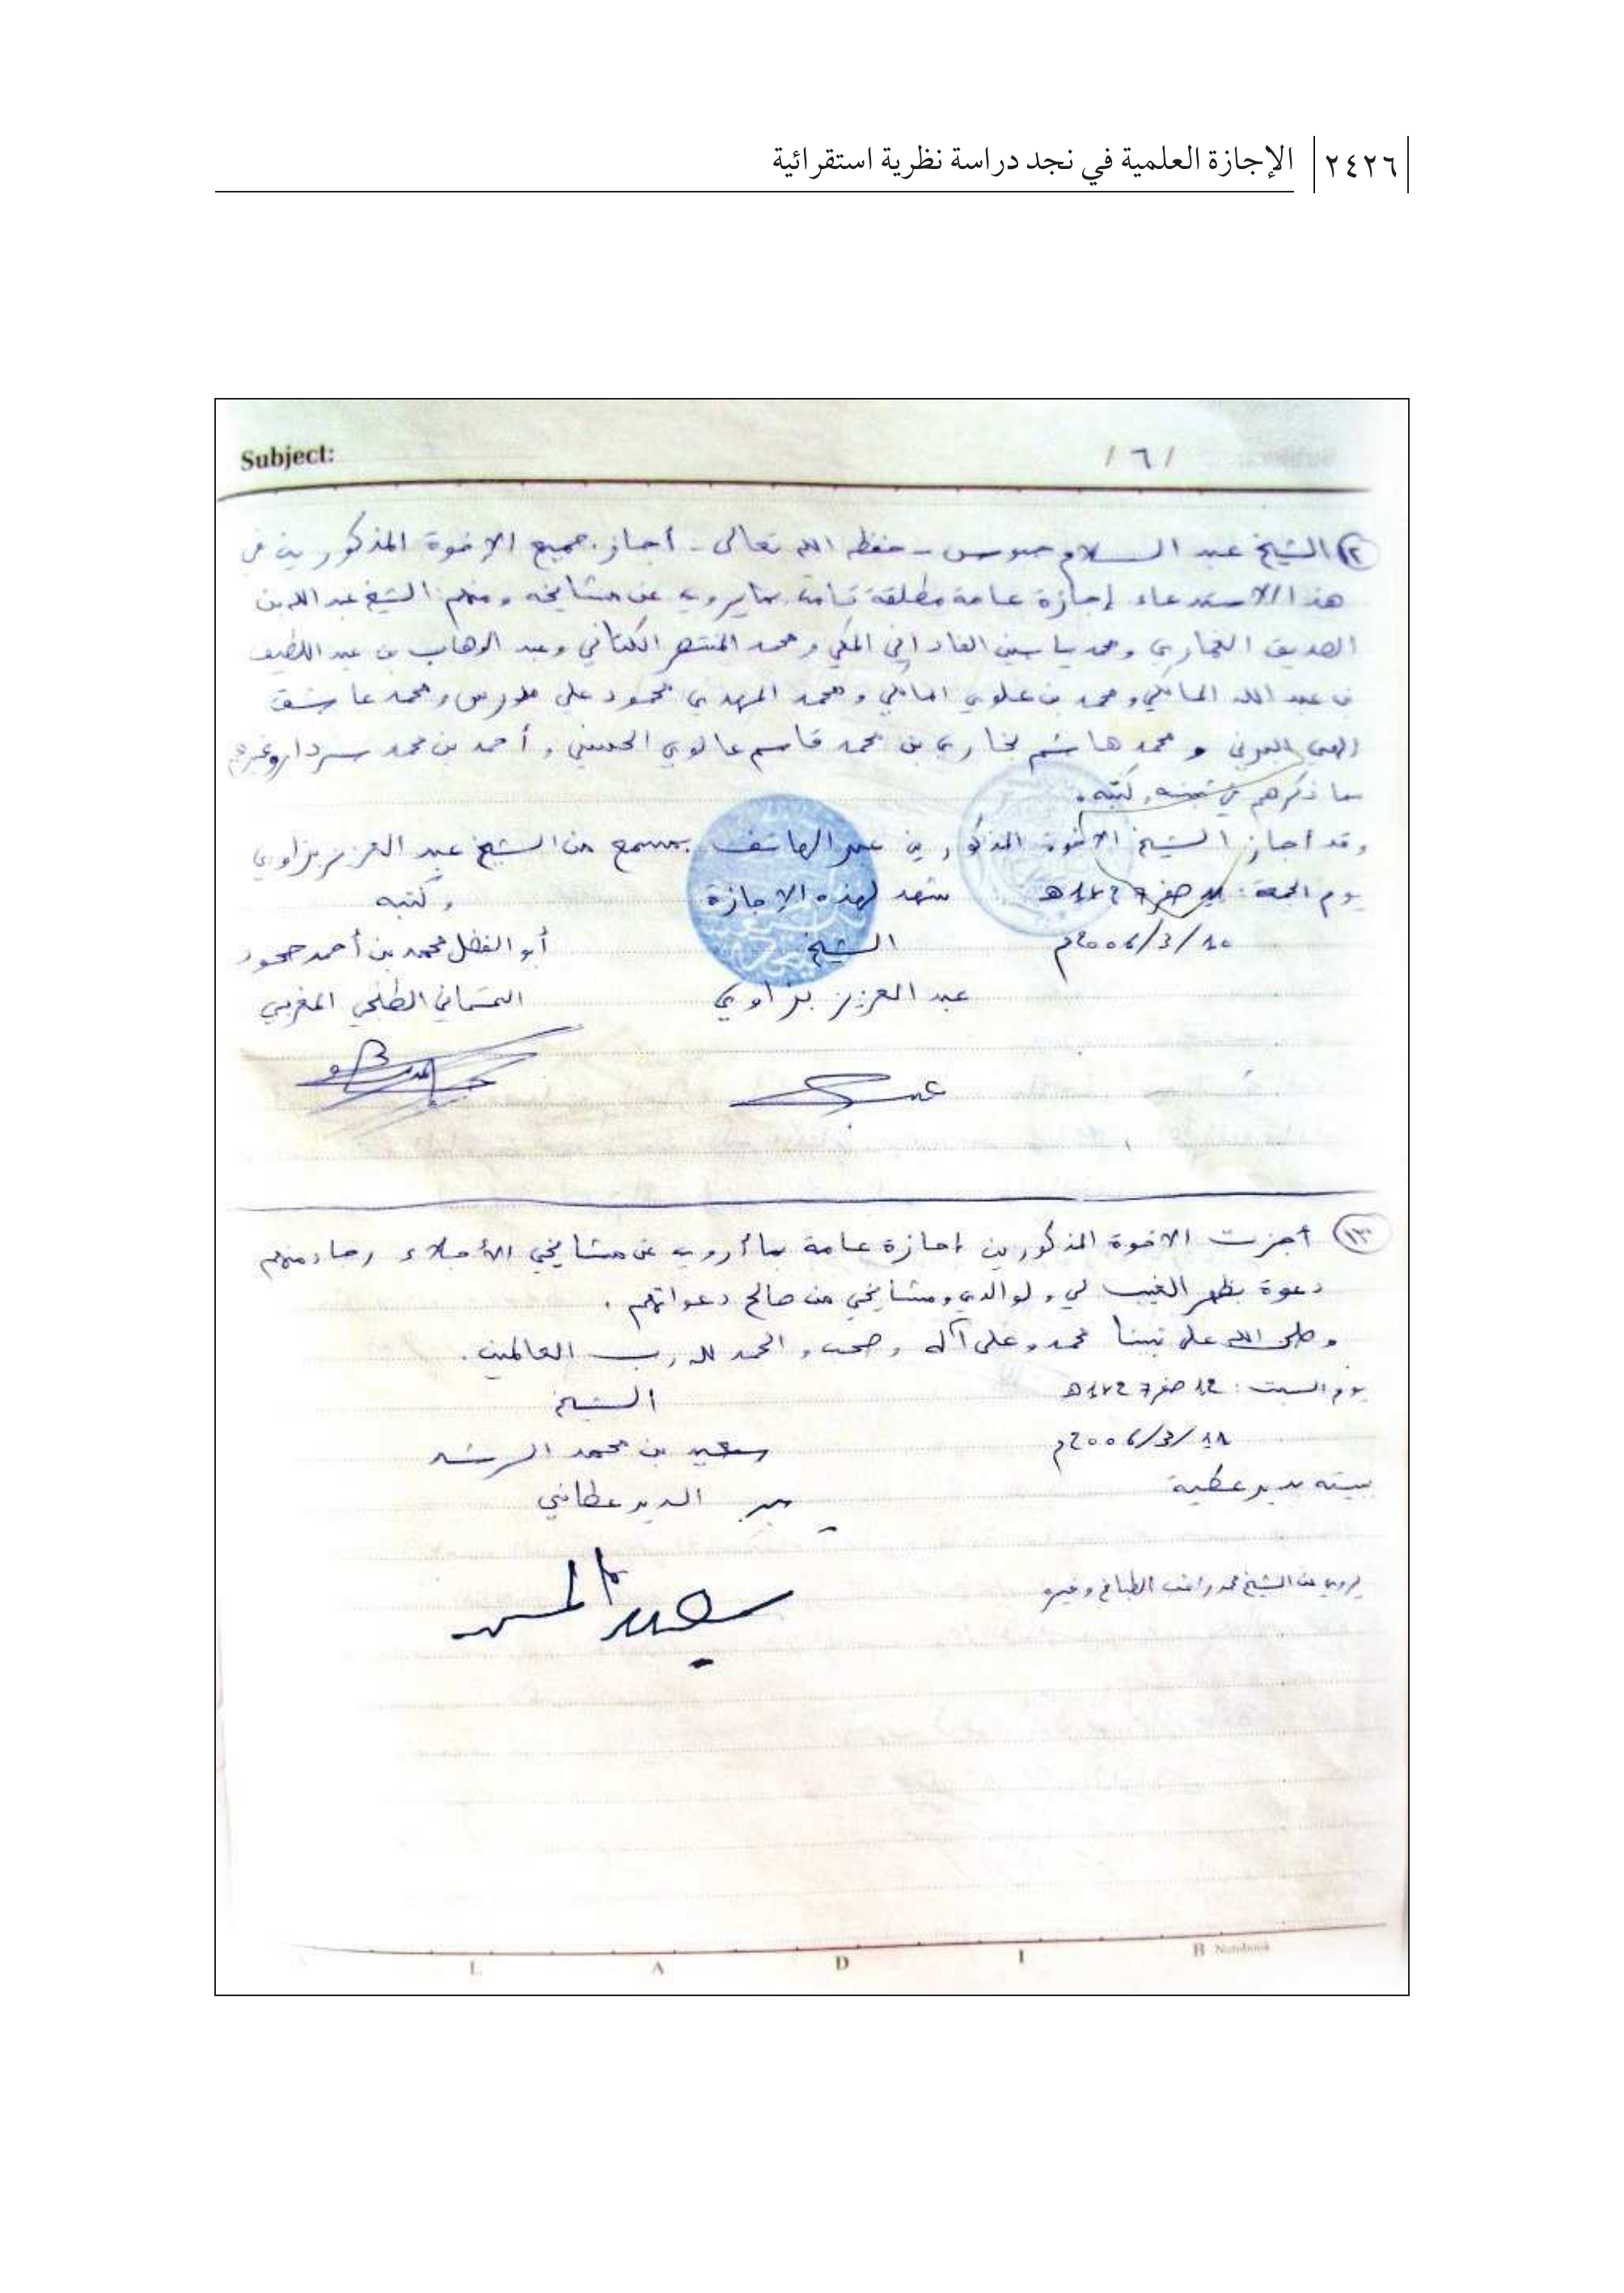 ٢٤٢٦ الإجازة العلمية في نجد دراسة نظرية استقرائية
Subject:
/ ٦ /
الشيخ عبد السلام - حفظه الله تعالى - أجاز جميع الاخوة المذكورين في
هذا الاستدعاء إجازة عامة مطلقة تامة بما يروي عن مشايخه ومنهم الشيخ عبد الله بن
الصديق الغماري ومحمد ياسين الفاداني المكي ومحمد المنتصر الكتاني وعبد الوهاب بن عبد اللطيف
بن عبد الله المالكي ومحمد بن علوي المالكي ومحمد المهدي محمود علي ومحمد عاشق
إلهي البرني و محمد هاشم بخاري بن محمد قاسم الحسيني و أحمد بن محمد سردار وغيرهم
مما ذكرهم في وكتبه.
وقد أجاز الشيخ الاخوة المذكورين عبر الهاتف بمسمع من الشيخ عبد العزيز بزاوي
يوم الجمعة: صفر 1427 هـ شهد لهذه الإجازة وكتبه
10/3/2006م الشيخ أبو الفضل محمد بن أحمد
عبد العزيز بزاوي المغربي
١٣ أجزت الاخوة المذكورين إجازة عامة بما أروي عن مشايخي الأجلاء رجاء منهم
دعوة بظهر الغيب لي ولوالدي ومشايخي من صالح دعواتهم.
وصلى الله على نبينا محمد وعلى آله وصحبه والحمد لله رب العالمين.
يوم السبت: 12 صفر 1427 هـ الشيخ
11/3/2006م سعيد بن محمد
ببيته بدير عطية الدير عطاني
يروي عن الشيخ محمد راغب الطباخ وغيره
L A D I B Notebook